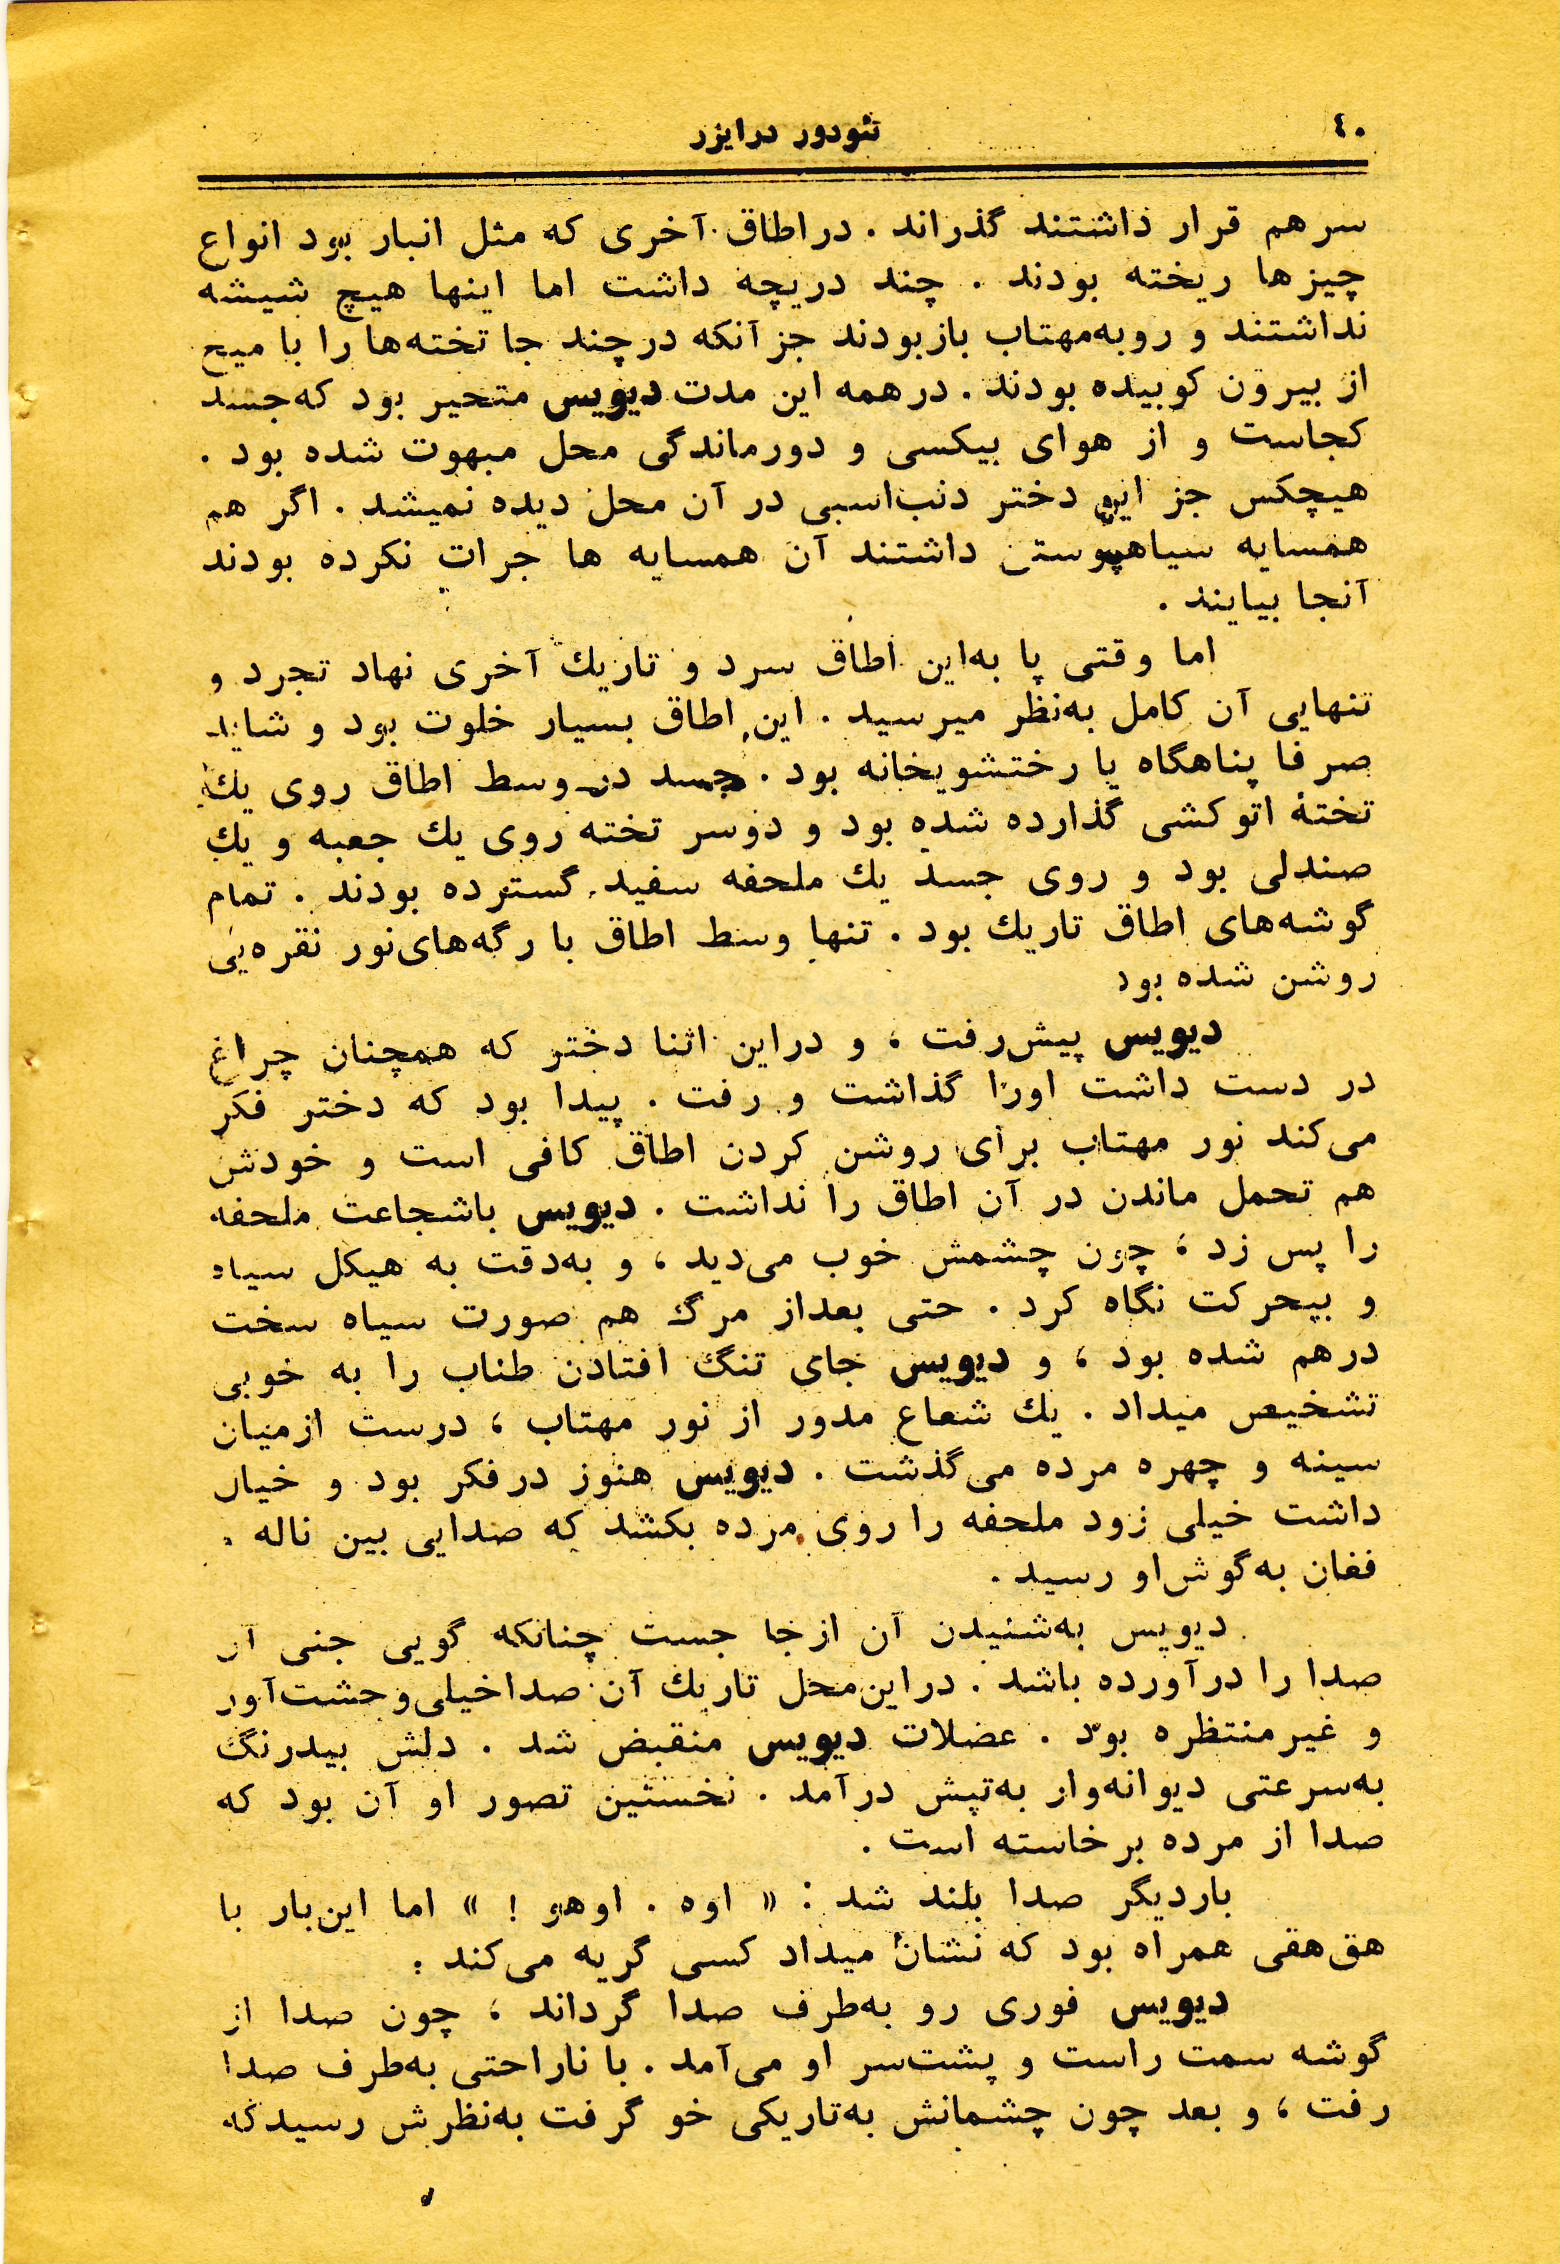 ٤٠
تئودور درایزر
سر هم قرار داشتند گذراند . در اطاق آخری که مثل انبار بود انواع
چیزها ریخته بودند . چند دریچه داشت اما اینها هیچ شیشه
نداشتند و روبه‌مهتاب باز بودند جز آنکه در چند جا تخته‌ها را با میخ
از بیرون کوبیده بودند . در همه این مدت دیویس متحیر بود که جسد
کجاست و از هوای بیکسی و دورماندگی محل مبهوت شده بود .
هیچکس جز این دختر دنب‌اسبی در آن محل دیده نمیشد . اگر هم
همسایه سیاهپوستی داشتند آن همسایه ها جرات نکرده بودند
آنجا بیایند .
اما وقتی پا به‌این اطاق سرد و تاریك آخری نهاد تجرد و
تنهایی آن کامل به‌نظر میرسید . این اطاق بسیار خلوت بود و شاید
صرفا پناهگاه یا رختشویخانه بود . جسد در وسط اطاق روی یك
تختهٔ اتوکشی گذارده شده بود و دوسر تخته روی یك جعبه و یك
صندلی بود و روی جسد یك ملحفه سفید گسترده بودند . تمام
گوشه‌های اطاق تاریك بود . تنها وسط اطاق با رگه‌های‌نور نقره‌یی
روشن شده بود
دیویس پیش‌رفت ، و دراین اثنا دختر که همچنان چراغ
در دست داشت اورا گذاشت و رفت . پیدا بود که دختر فکر
می‌کند نور مهتاب برای روشن کردن اطاق کافی است و خودش
هم تحمل ماندن در آن اطاق را نداشت . دیویس باشجاعت ملحفه
را پس زد ، چون چشمش خوب می‌دید ، و به‌دقت به هیکل سیاه
و بیحرکت نگاه کرد . حتی بعداز مرگ هم صورت سیاه سخت
درهم شده بود ، و دیویس جای تنگ افتادن طناب را به خوبی
تشخیص میداد . یك شعاع مدور از نور مهتاب ، درست ازمیان
سینه و چهره مرده می‌گذشت . دیویس هنوز درفکر بود و خیال
داشت خیلی زود ملحفه را روی مرده بکشد که صدایی بین ناله و
فغان به‌گوش‌او رسید .
دیویس به‌شنیدن آن ازجا جست چنانکه گویی جنی آن
صدا را درآورده باشد . دراین‌محل تاریك آن صداخیلی‌وحشت‌آور
و غیرمنتظره بود . عضلات دیویس منقبض شد . دلش بیدرنگ
به‌سرعتی دیوانه‌وار به‌تپش درآمد . نخستین تصور او آن بود که
صدا از مرده برخاسته است .
باردیگر صدا بلند شد : « اوه . اوهو ! » اما این‌بار با
هق‌هقی همراه بود که نشان میداد کسی گریه می‌کند :
دیویس فوری رو به‌طرف صدا گرداند ، چون صدا از
گوشه سمت راست و پشت‌سر او می‌آمد . با ناراحتی به‌طرف صدا
رفت ، و بعد چون چشمانش به‌تاریکی خو گرفت به‌نظرش رسیدکه